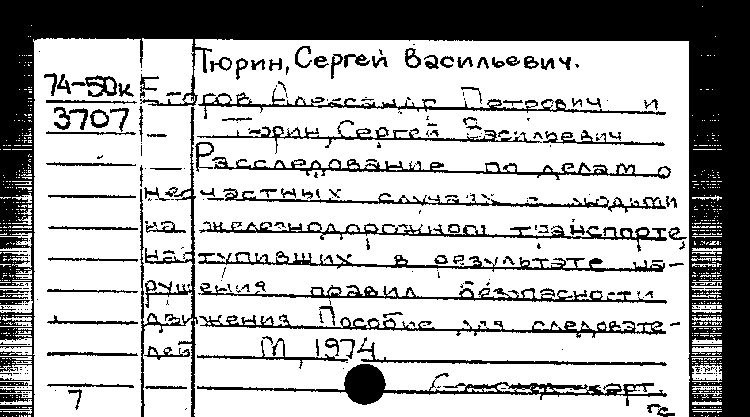 Тюрин, Сергей Васильевич.
74-50к Егоров, Александр Петрович и
3707 Тюрин, Сергей Васильевич
Расследование по делам о
несчастных случаях с людьми
на железнодорожном транспорте,
наступивших в результате на-
рушения правил безопасности
движения Пособие для следовате-
лей М, 1974.
7